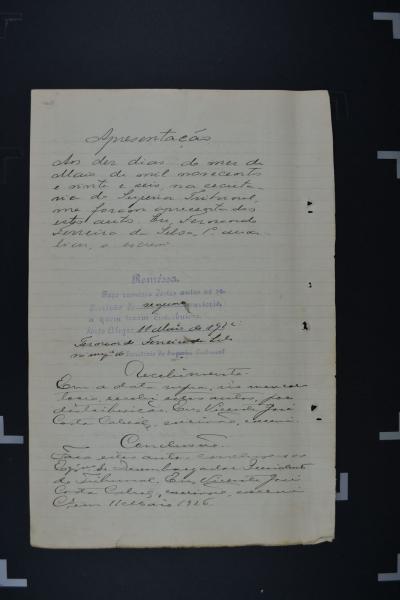 Apresentação
Aos dez dias do mez de
Maio de mil novecentos
e vinte e seis, na secreta-
ria do Superior Tribunal,
me foram apresentados
estes autos. Eu, Fernando
Ferreira da Silva,
o escrevi
Remessa
Faço remessa destes autos ao es-
crivão do segundo cartorio,
a quem foram distribuidos.
Porto Alegre, 11 Maio de 1926
Fernando Ferreira da Silva
Secretario do Superior Tribunal
Recebimento
Em a data supra, em meu car-
torio, recebi estes autos, por
distribuição. Eu, Vicente José
Costa Cabral, escrivão, escrevi.
Conclusão
Faço estes autos conclusos ao
Exmo. Sr. Desembargador Presidente
do Tribunal. Eu, Vicente José
Costa Cabral, escrivão, escrevi
Em 11 Maio 1926